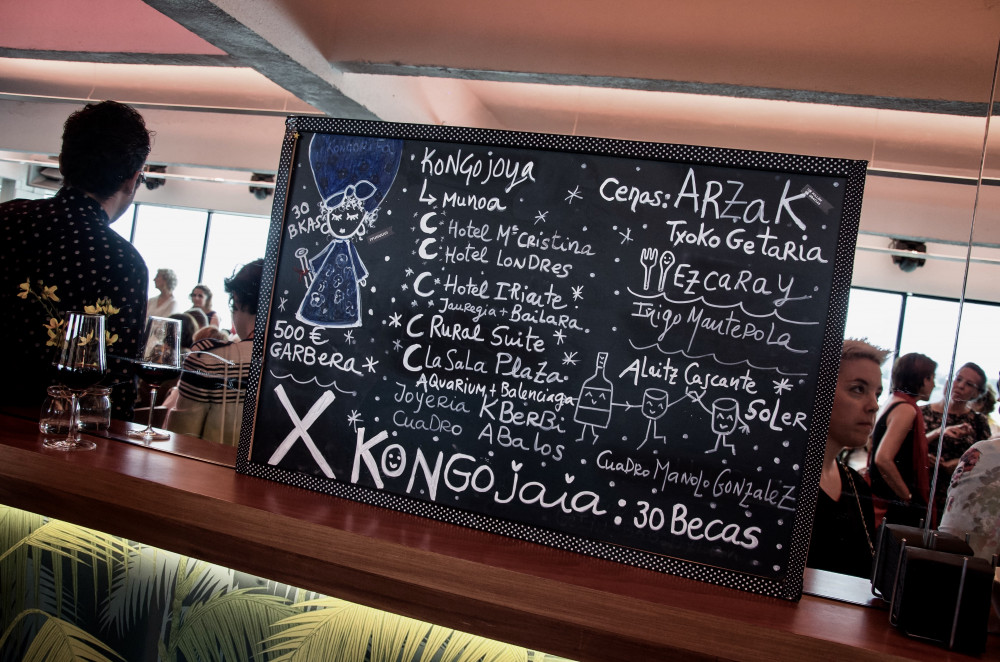 30
BKAS
500 €
GARBERA
KONGOJOYA
MUNOA
Hotel Mª CRistina
Hotel LONDRes
Hotel IRiarte
JauRegia + Bailara
RURal Suite
la Sala Plaza
AQUaRium + Balenciaga
JOYERIA KBERBi
CUaDRO ABalos
Cenas: ARZaK
TXOKO GeTaRia
EZCARAY
Iñigo Manterola
Alaitz Cascante
SoleR
CuaDRO Manolo GONZaleZ
X KONGOjaia : 30 Becas